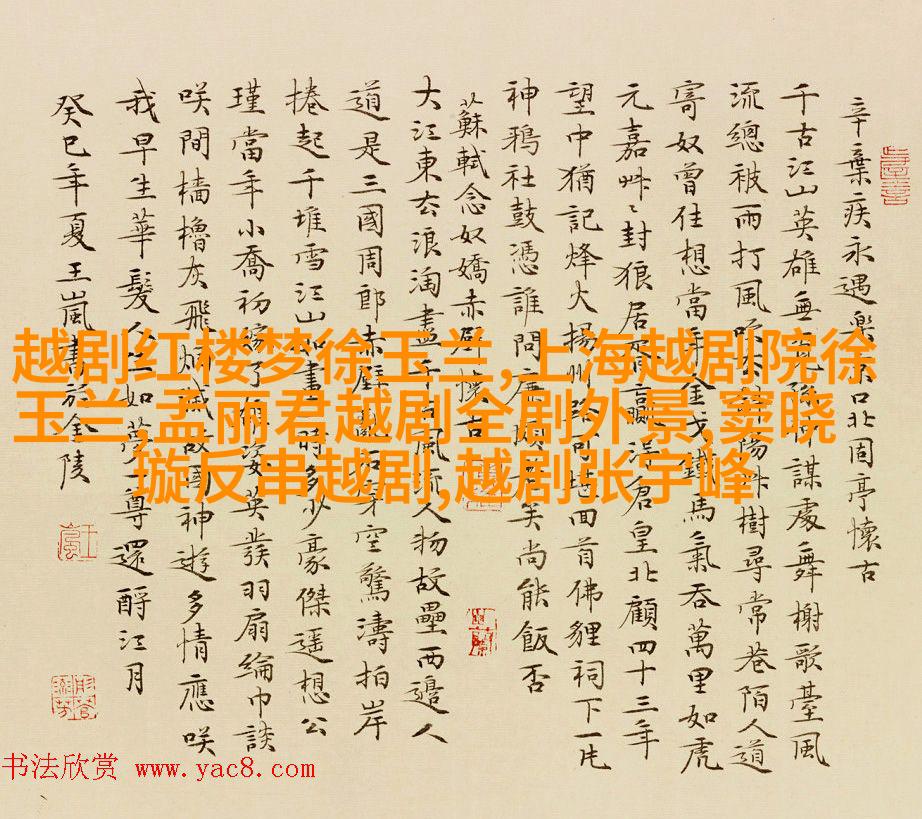 辛棄疾永遇樂京口北固亭懷古
千古江山英雄無覓孫仲謀處舞榭歌臺風
流總被雨打風吹去斜陽艸樹尋常巷陌人道
寄奴曾住想當年金戈鐵馬氣吞萬里如虎
元嘉艸〻封狼居胥贏得倉皇北顧四十三年
望中猶記烽火揚州路可堪回首佛貍祠下一片
神鴉社鼓憑誰問廉頗老矣尚能飯否
蘇軾念奴嬌赤壁懷古
大江東去浪淘盡千古風流人物故壘西邊人
道是三國周郎赤壁亂石穿空驚濤拍岸
捲起千堆雪江山如畫一時多少豪傑遥想公
瑾當年小喬初嫁了雄姿英發羽扇綸巾談
咲間檣櫓灰飛烟滅故國神遊多情應咲
我早生華髮人生如夢一尊還酹江月
癸巳年夏王嵐書於金陵
越剧红楼梦徐玉兰,上海越剧院徐
玉兰,孟丽君越剧全剧外景,窦晓
璇反串越剧,越剧张宇峰
书法欣赏 www.yac8.com